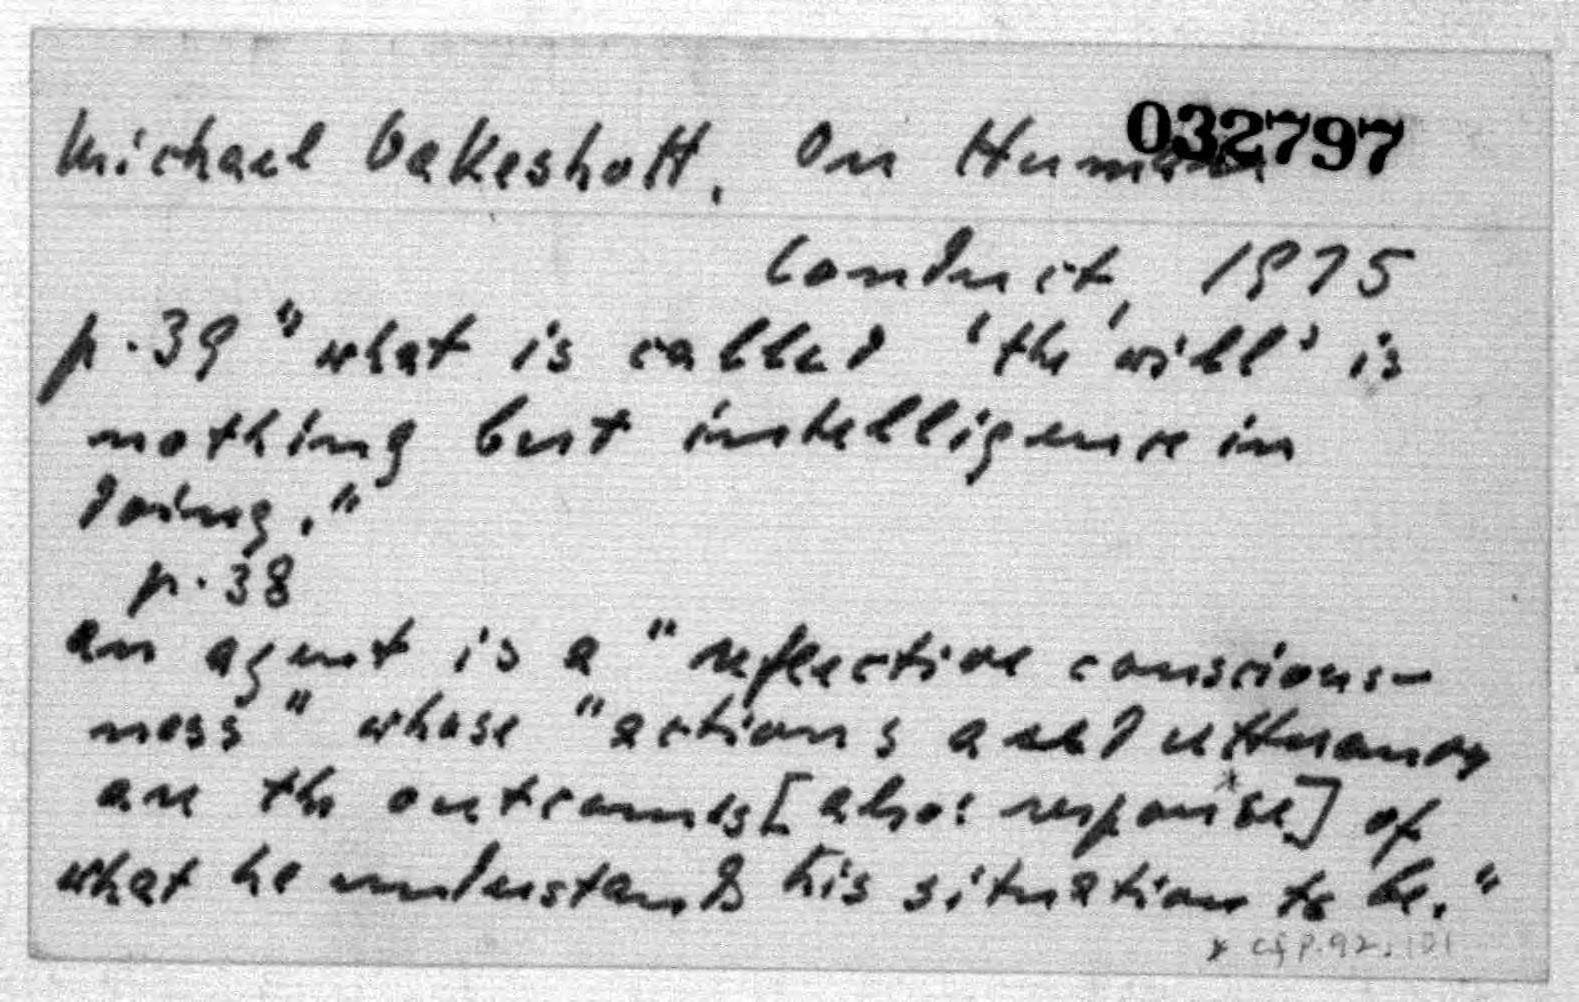 032797
Michael Oakeshott. On Human
Conduct, 1975
p.39 "what is called 'the will' is
nothing but intelligence in
doing."
p.38
an agent is a "reflective conscious-
ness" whose "actions and utterances
are the outcomes [also: response] of
what he understands his situation to be."
* cf p.92, 101